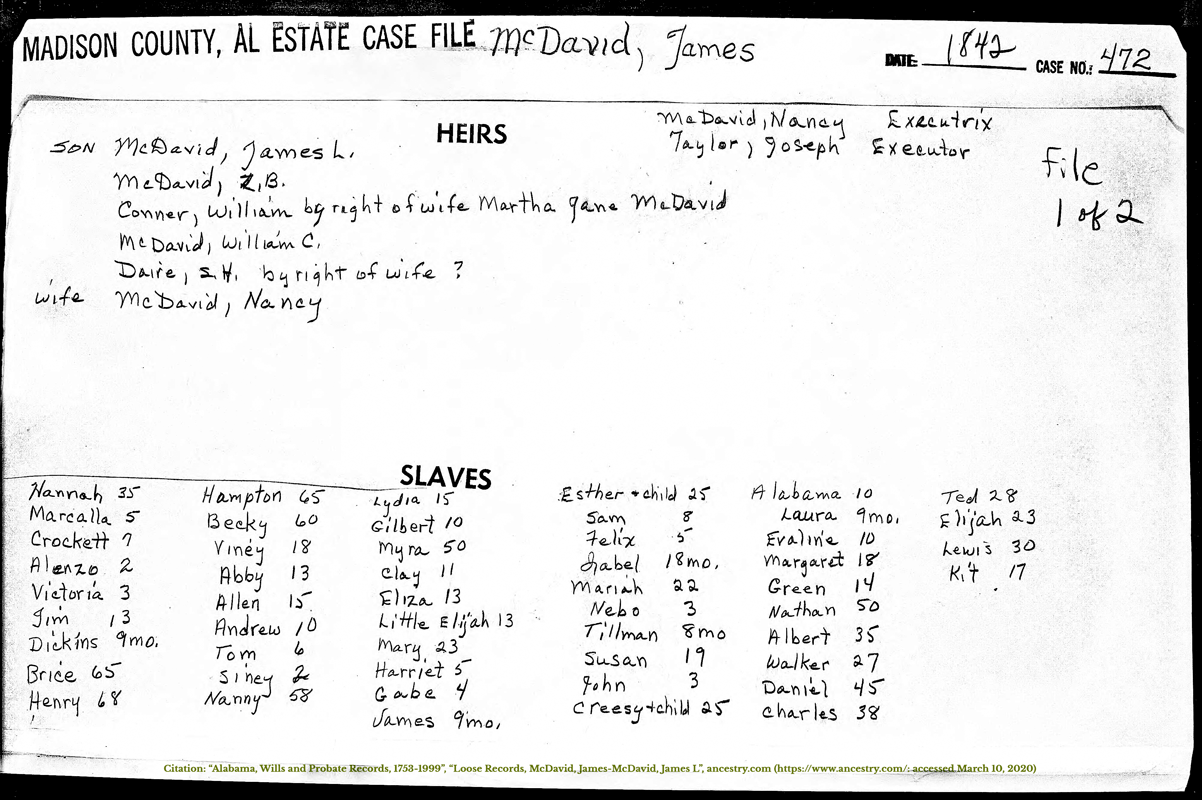 MADISON COUNTY, AL ESTATE CASE FILE McDavid, James
DATE: 1842 CASE NO.: 472
HEIRS
McDavid, Nancy Executrix
Taylor, Joseph Executor
File
1 of 2
SON McDavid, James L.
McDavid, Z.B.
Conner, William by right of wife Martha Jane McDavid
McDavid, William C.
Davie, S.H. by right of wife ?
wife McDavid, Nancy
SLAVES
Hannah 35
Marcalla 5
Crockett 7
Alonzo 2
Victoria 3
Jim 13
Dickins 9mo.
Brice 65
Henry 68
Hampton 65
Becky 60
Viney 18
Abby 13
Allen 15
Andrew 10
Tom 6
Siney 2
Nanny 58
Lydia 15
Gilbert 10
Myra 50
Clay 11
Eliza 13
Little Elijah 13
Mary 23
Harriet 5
Gabe 4
James 9mo.
Esther + child 25
Sam 8
Felix 5
Isabel 18mo.
Mariah 22
Nebo 3
Tillman 8mo
Susan 19
John 3
Creesy + child 25
Alabama 10
Laura 9mo.
Evaline 10
Margaret 18
Green 14
Nathan 50
Albert 35
Walker 27
Daniel 45
Charles 38
Ted 28
Elijah 23
Lewis 30
Kit 17
Citation: "Alabama, Wills and Probate Records, 1753-1999", "Loose Records, McDavid, James-McDavid, James L", ancestry.com (https://www.ancestry.com/: accessed March 10, 2020)